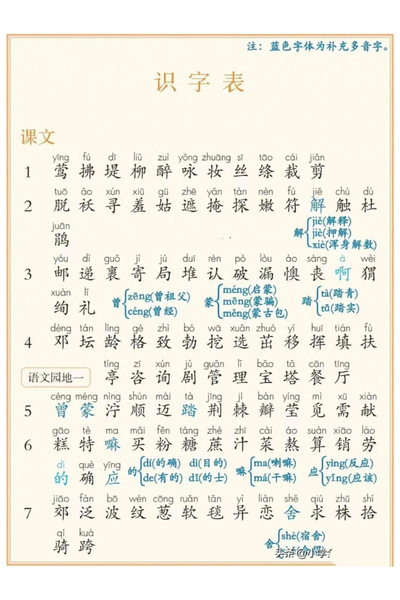 注：蓝色字体为补充多音字。
识字表
课文
yīng fú dī liǔ zuì yǒng zhuāng sī tāo cái jiǎn
1 莺 拂 堤 柳 醉 咏 妆 丝 绦 裁 剪
tuō ǎo xún xiū gū zhē yǎn tàn nèn fú jiě chù dù
2 脱 袄 寻 羞 姑 遮 掩 探 嫩 符 解 触 杜
juān
鹃
解 jiě(解释) jiè(押解) xiè(浑身解数)
yóu dì guǒ jì jú duī rèn pò lòu ào sàng á wèi
3 邮 递 裹 寄 局 堆 认 破 漏 懊 丧 啊 猬
xuàn lǐ
绚 礼
曾 zēng(曾祖父) céng(曾经)
蒙 méng(启蒙) mēng(蒙骗) měng(蒙古包)
踏 tà(踏青) tā(踏实)
dèng tán líng gé zhì bó wā xuǎn zhuó yí huī tián fú
4 邓 坛 龄 格 致 勃 挖 选 茁 移 挥 填 扶
语文园地一
tíng zī xún jù guǎn lǐ bǎo tǎ cān tīng
亭 咨 询 剧 管 理 宝 塔 餐 厅
céng méng nìng shùn mài tà jīng jí bàn yíng mì xū xiàn
5 曾 蒙 泞 顺 迈 踏 荆 棘 瓣 莹 觅 需 献
gāo tè ma mǎi fěn táng zhè zhī cài áo suàn xiāo láo
6 糕 特 嘛 买 粉 糖 蔗 汁 菜 熬 算 销 劳
dí què yīng
的 确 应
的 dí(的确) dì(目的) de(有的) dī(的士)
嘛 ma(喇嘛) má(干嘛)
应 yìng(反应) yīng(应该)
jiāo fàn bō wén cōng ruǎn tǎn yì liàn shě qiú zhū shí
7 郊 泛 波 纹 葱 软 毯 异 恋 舍 求 株 拾
qí kuà
骑 跨
舍 shè(宿舍)